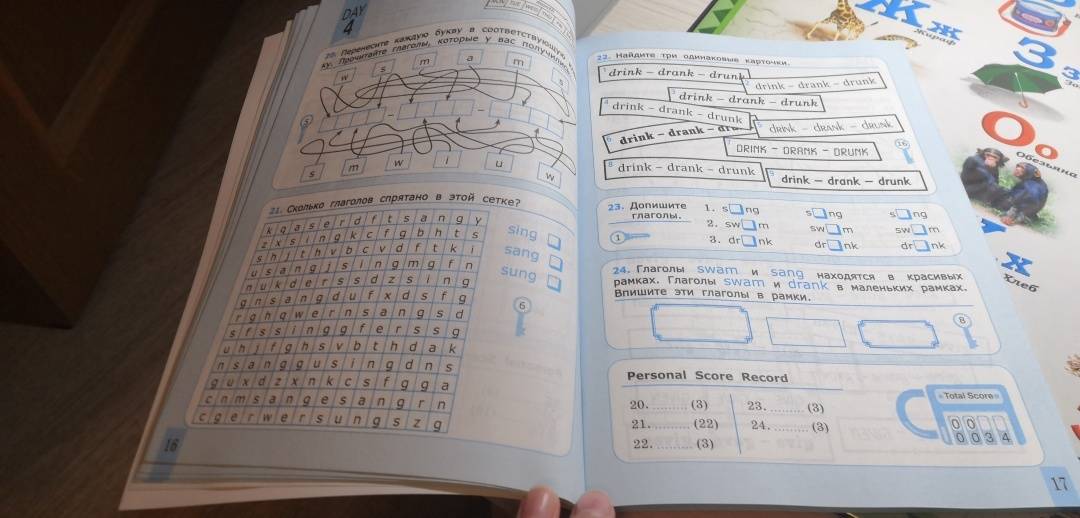 DAY
4
MON TUE WED THU
20. Перенесите каждую букву в соответствующую
ку. Прочитайте глаголы, которые у вас получились.
w s m a m s
S
s m w i u w
21. Сколько глаголов спрятано в этой сетке?
k g a s e r d f t s a n g y
z x s i n g k c f g b h t s
s h j t h v b c v d f t k i
u s a n g j s i n g m g f n
n u k d e r s s d z s i n g
g n s a n g d u f x d s f g
r g h q w e r n s a n g s d
s f s s i n g g f e r s s g
u h j f g h s v b t h d a k
n s a n g g u s i n g d n s
g u x d z x n k c s f g g a
c n m s a n g e s a n g r n
c g e r w e r s u n g s z g
sing
sang
sung
6
16
22. Найдите три одинаковые карточки.
1 drink – drank – drunk
2 drink – drank – drunk
3 drink – drank – drunk
4 drink – drank – drunk
5 drink – drank – drunk
6 drink – drank –
7 DRINK – DRANK – DRUNK
16
8 drink – drank – drunk
9 drink – drank – drunk
23. Допишите глаголы.
1
1. s□ng s□ng s□ng
2. sw□m sw□m sw□m
3. dr□nk dr□nk dr□nk
24. Глаголы swam и sang находятся в красивых
рамках. Глаголы swam и drank в маленьких рамках.
Впишите эти глаголы в рамки.
8
Personal Score Record
20. ........ (3) 23. ........ (3)
21. ........ (22) 24. ........ (3)
22. ........ (3)
Total Score
0 0
0 0 3 4
17
Жж
жираф
З з
Оо
Обезьяна
Х
Хлеб